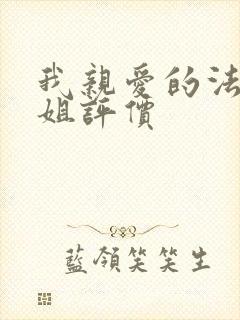 我親愛的法
姐評價
藍領笑笑生